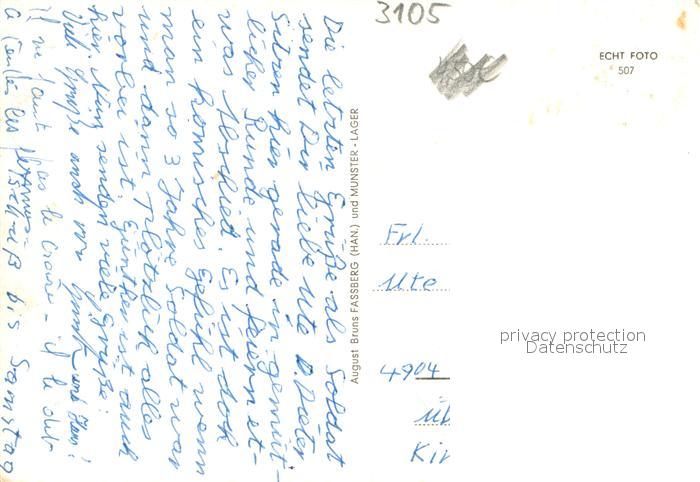 Die letzten Grüße als Soldat
sendet Dir liebe Ute D. Dieter
Sitzen hier gerade in gemüt-
licher Runde und feiern et-
was Abschied. Es ist doch
ein komisches Gefühl wenn
man so 3 Jahre Soldat war
und dann plötzlich alles
vorbei ist. Günther ist auch
hier. Nun senden viele Grüße:
Viele Grüße auch von und Hans!
Il ne faut pas le croire - il le dit
à toutes les
Tschüß bis Samstag
August Bruns FASSBERG (HAN.) und MUNSTER - LAGER
3105
ECHT FOTO
507
Frl.
Ute
4904
privacy protection
Datenschutz